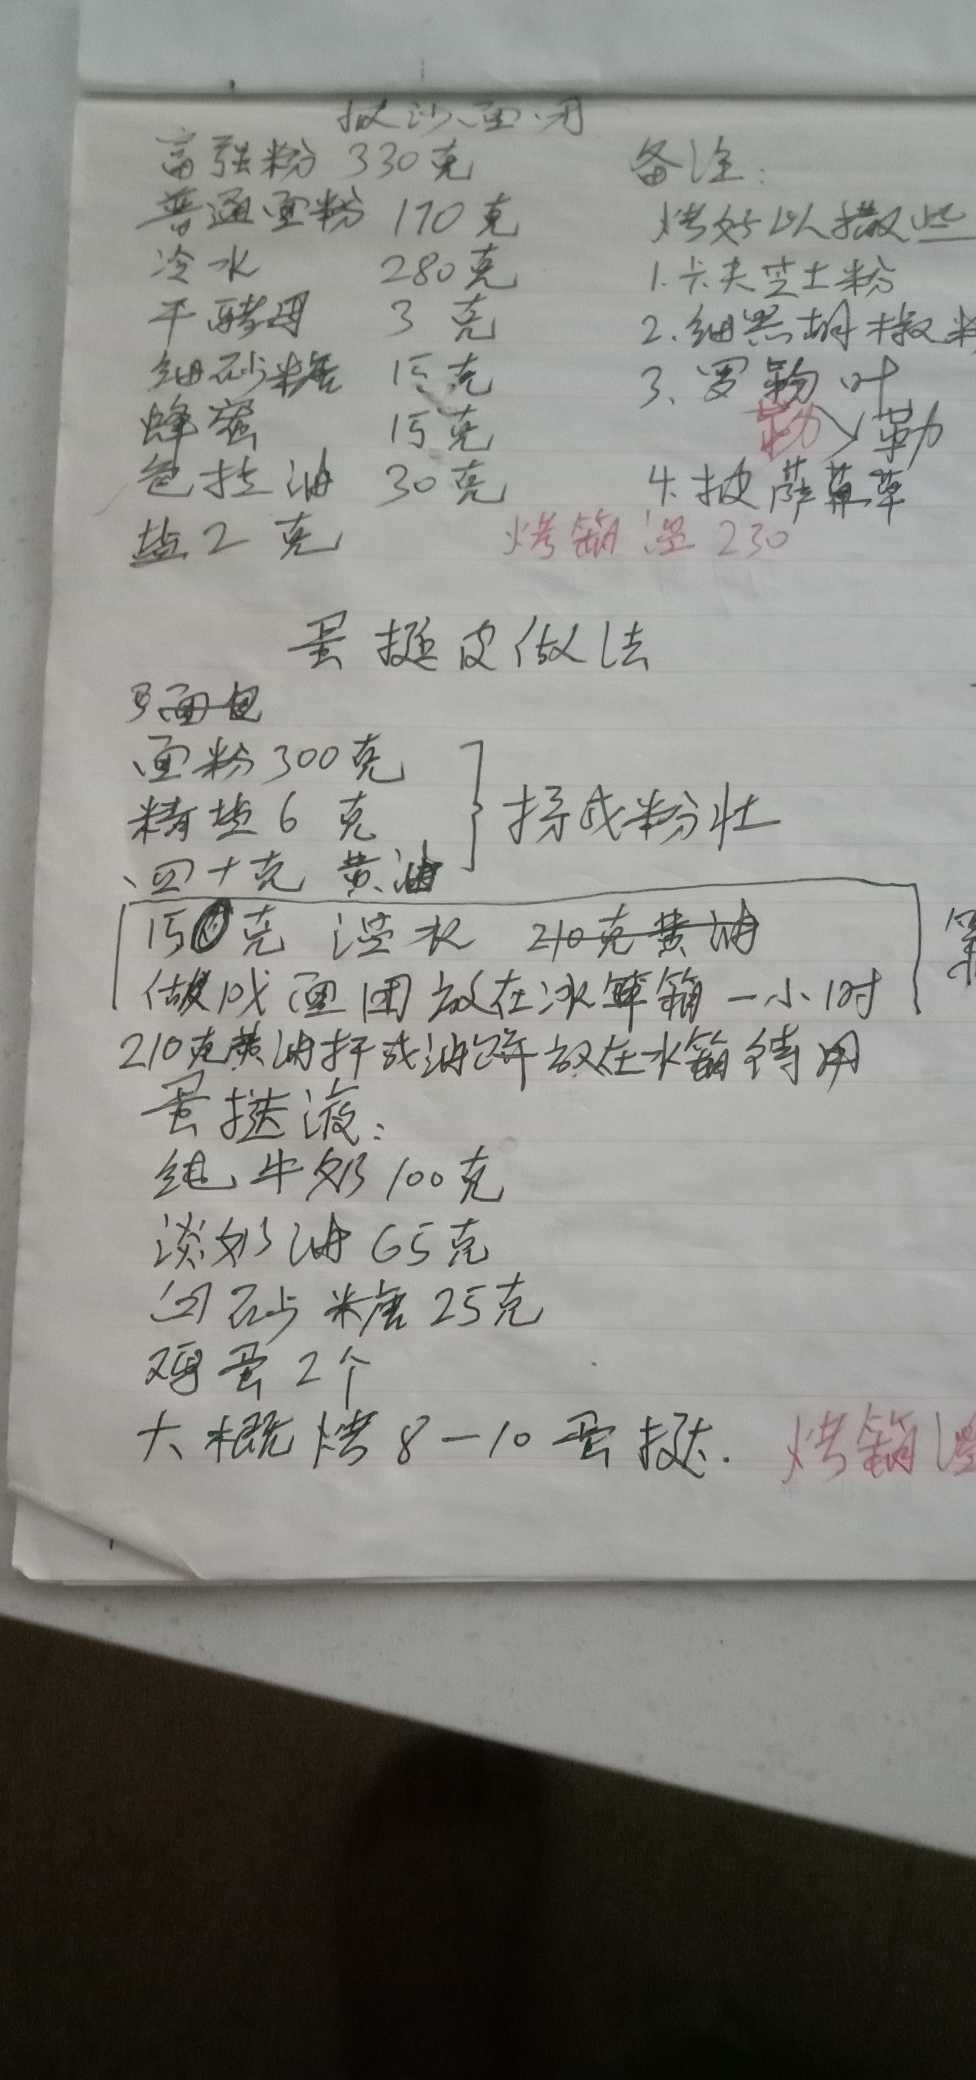 披沙面用
富强粉 330克
普通面粉 170克
冷水 280克
干酵母 3克
细砂糖 15克
蜂蜜 15克
色拉油 30克
盐2克
备注:
烤好以撒些
1.卡夫芝士粉
2.细黑胡椒粉
3、罗勒叶
勒 勒
4.披萨草
烤箱温230
蛋挞皮做法
面包
面粉300克
精盐6克
四十克 黄油
搓成粉壮
150克 温水 210克黄油
做成面团放在冰箱一小时
210克黄油扞成油饼放在水箱待用
蛋挞液:
纯牛奶100克
淡奶油65克
白砂糖25克
鸡蛋2个
大概烤8一10蛋挞.
烤箱温